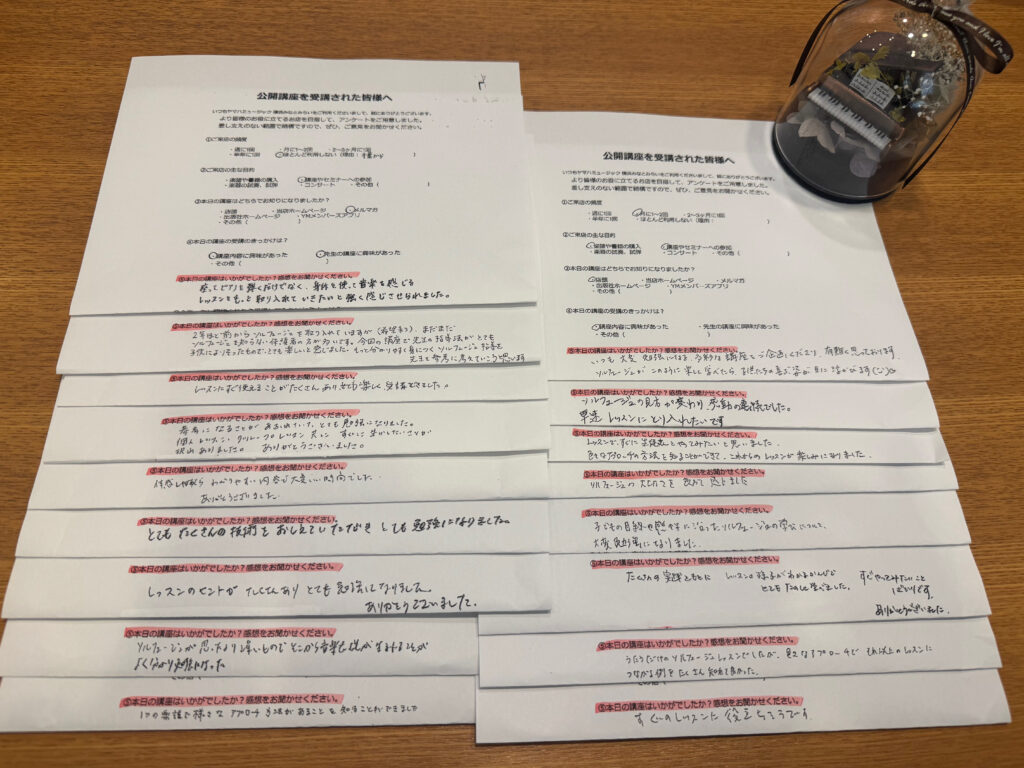 公開講座を受講された皆様へ
いつもヤマハミュージック 横浜みなとみらいをご利用くださいまして、誠にありがとうございます。
より皆様のお役に立てるお店を目指して、アンケートをご用意しました。
差し支えのない範囲で結構ですので、ぜひ、ご意見をお聞かせください。
①ご来店の頻度
・週に1回 ・月に1~2回 ・2~3ヶ月に1回
・半年に1回 ・ほとんど利用しない（理由： 千葉から
②ご来店の主な目的
・楽譜や書籍の購入 ・講座やセミナーへの参加
・楽器の試奏、試弾 ・コンサート ・その他（ ）
③本日の講座はどちらでお知りになりましたか？
・店頭 ・当店ホームページ ・メルマガ
・出版社ホームページ ・YMメンバーズアプリ
・その他（ ）
④本日の講座の受講のきっかけは？
・講座内容に興味があった ・先生の講座に興味があった
・その他（ ）
⑤本日の講座はいかがでしたか？感想をお聞かせください。
座ってピアノを弾くだけでなく、身体を使って音楽を感じる
レッスンをもっと取り入れていきたいと強く感じさせられました。
⑤本日の講座はいかがでしたか？感想をお聞かせください。
2年ほど前からソルフェージュを取り入れていますが(希望者)、まだまだ
ソルフェージュを知らない保護者の方が多いです。今回の講座で先生の指導法がとても
子供により添ったものでとても楽しいと思いました。もっと分かりやすく身につくソルフェージュ指導を
先生を参考に考えていこうと思います
⑤本日の講座はいかがでしたか？感想をお聞かせください。
レッスンにすぐ使えることがたくさんあり とても楽しく受講できました。
⑤本日の講座はいかがでしたか？感想をお聞かせください。
参考になることがあふれていて、とても勉強になりました。
個人レッスン、グループレッスン 共に すぐに生かしたいことが
沢山ありました。 ありがとうございました。
⑤本日の講座はいかがでしたか？感想をお聞かせください。
体感しながら わかりやすい内容で大変いい時間でした
ありがとうございました。
⑤本日の講座はいかがでしたか？感想をお聞かせください。
とても たくさんの技術を おしえていただき とても 勉強になりました。
⑤本日の講座はいかがでしたか？感想をお聞かせください。
レッスンのヒントが たくさんあり とても勉強になりました
ありがとうございました。
⑤本日の講座はいかがでしたか？感想をお聞かせください。
ソルフェージュが思ったより深いもので そこから音楽表現が生まれることが
よく分かり勉強になった
⑤本日の講座はいかがでしたか？感想をお聞かせください。
1つの素材で様々な アプローチ方法があることを 知ることができました
公開講座を受講された皆様へ
いつもヤマハミュージック 横浜みなとみらいをご利用くださいまして、誠にありがとうございます。
より皆様のお役に立てるお店を目指して、アンケートをご用意しました。
差し支えのない範囲で結構ですので、ぜひ、ご意見をお聞かせください。
①ご来店の頻度
・週に1回 ・月に1~2回 ・2~3ヶ月に1回
・半年に1回 ・ほとんど利用しない（理由： ）
②ご来店の主な目的
・楽譜や書籍の購入 ・講座やセミナーへの参加
・楽器の試奏、試弾 ・コンサート ・その他（ ）
③本日の講座はどちらでお知りになりましたか？
・店頭 ・当店ホームページ ・メルマガ
・出版社ホームページ ・YMメンバーズアプリ
・その他（ ）
④本日の講座の受講のきっかけは？
・講座内容に興味があった ・先生の講座に興味があった
・その他（ ）
⑤本日の講座はいかがでしたか？感想をお聞かせください。
いつも大変勉強になる、多彩な講座をご企画くださり、有難く思っております。
ソルフェージュが このように楽しく学べたら、お子供たちの喜ぶ姿が目に浮かびます(^-^)
⑤本日の講座はいかがでしたか？感想をお聞かせください。
ソルフェージュの見方が変わり 感動の講演でした。
早速 レッスンに とり入れたいです
⑤本日の講座はいかがでしたか？感想をお聞かせください。
レッスンで、すぐに生徒達とやってみたいと思いました。
色々なアプローチの方法を知ることができて、これからのレッスンが楽しみになりました。
⑤本日の講座はいかがでしたか？感想をお聞かせください。
ソルフェージュの大切さを改めて感じました
⑤本日の講座はいかがでしたか？感想をお聞かせください。
子どもの目線や感性に沿ったソルフェージュの学びについて、
大変勉強になりました。
⑤本日の講座はいかがでしたか？感想をお聞かせください。
たくさんの実践とともに レッスンの様子がわかるかんじで すぐやってみたいこと
とてもたのしく学べました。 ばかりです。
ありがとうございました。
⑤本日の講座はいかがでしたか？感想をお聞かせください。
うたうだけのソルフェージュレッスンでしたが、色々なアプローチで それ以上のレッスンに
つながる例をたくさん知れて良かった。
⑤本日の講座はいかがでしたか？感想をお聞かせください。
すぐのレッスンに 役立ちそうです